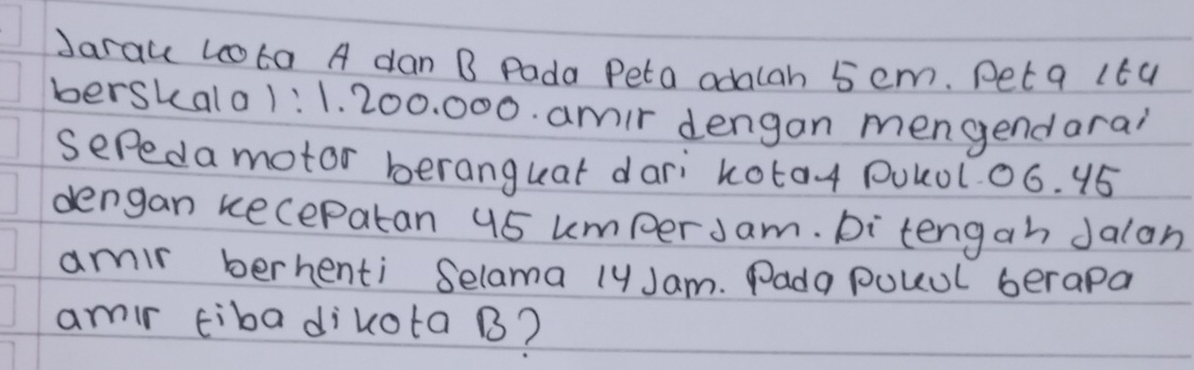 Jarak kota A dan B Pada Peta adalah 5 cm. Peta itu
berskala 1:1.200.000. amir dengan mengendarai
sepeda motor berangkat dari kota A Pukul 06.45
dengan kecepatan 45 km per Jam. Di tengah Jalan
amir berhenti Selama 14 Jam. Pada pukul berapa
amir tiba di kota B?